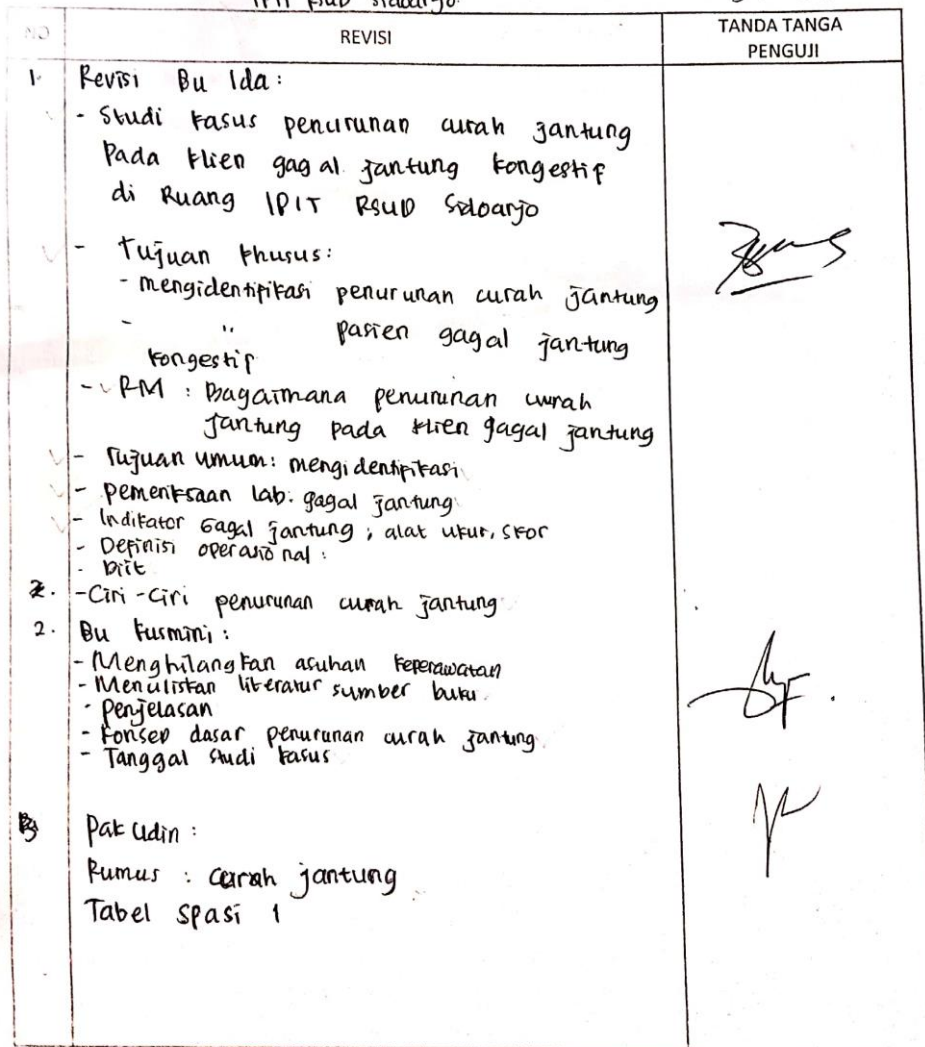 IPIT RSUD Sidoarjo
NO
REVISI
TANDA TANGA
PENGUJI
1. Revisi Bu Ida:
- Studi kasus penurunan curah jantung
Pada klien gagal jantung kongestif
di Ruang IPIT RSUD Sidoarjo
- Tujuan khusus:
- mengidentifikasi penurunan curah jantung
- " pasien gagal jantung
kongestif
- RM : Bagaimana penurunan curah
jantung pada klien gagal jantung
- Tujuan umum: mengidentifikasi
- pemeriksaan lab. gagal jantung
- Indikator Gagal jantung ; alat ukur, skor
- Definisi operasional :
- Diit
2. - Ciri-Ciri penurunan curah jantung
2. Bu Kusmini :
- Menghilangkan asuhan keperawatan
- Menuliskan literatur sumber buku.
- Penjelasan
- Konsep dasar penurunan curah jantung
- Tanggal studi kasus
3 Pak Udin :
Rumus : curah jantung
Tabel spasi 1